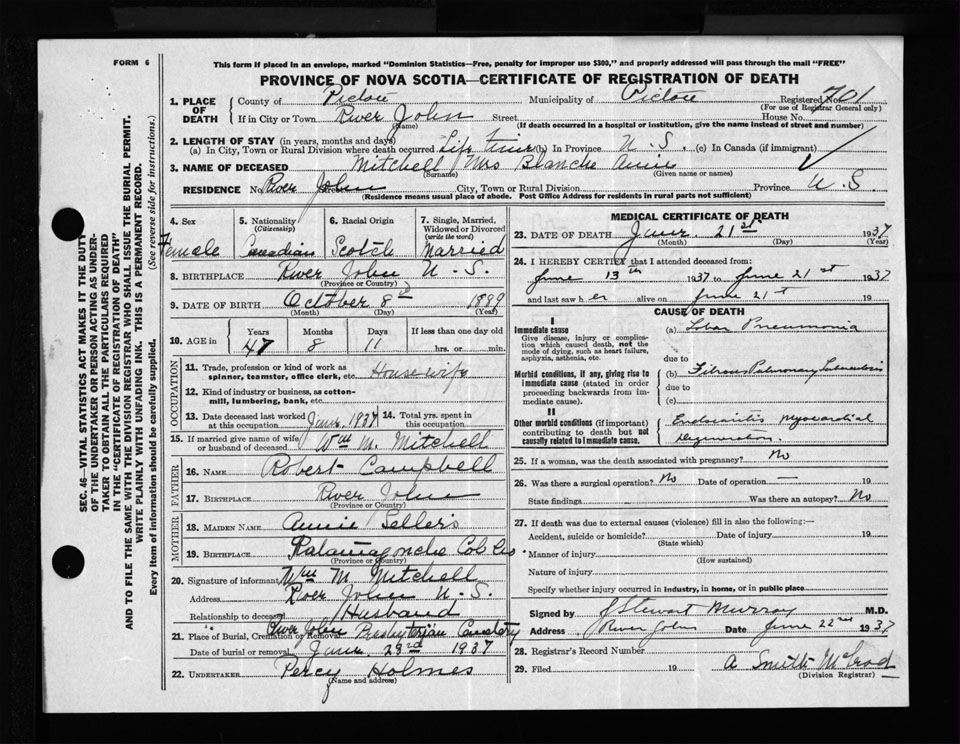 FORM 6
This form if placed in an envelope, marked "Dominion Statistics—Free, penalty for improper use $300," and properly addressed will pass through the mail "FREE"
PROVINCE OF NOVA SCOTIA—CERTIFICATE OF REGISTRATION OF DEATH
SEC. 46—VITAL STATISTICS ACT MAKES IT THE DUTY
OF THE UNDERTAKER OR PERSON ACTING AS UNDER-
TAKER TO OBTAIN ALL THE PARTICULARS REQUIRED
IN THE "CERTIFICATE OF REGISTRATION OF DEATH"
AND TO FILE THE SAME WITH THE DIVISION REGISTRAR WHO SHALL ISSUE THE BURIAL PERMIT.
WRITE PLAINLY WITH UNFADING INK. THIS IS A PERMANENT RECORD.
Every item of information should be carefully supplied. (See reverse side for instructions.)
1. PLACE OF DEATH County of Pictou Municipality of Pictou Registered No. 701
(For use of Registrar General only)
If in City or Town River John Street House No.
(Name) (If death occurred in a hospital or institution, give the name instead of street and number)
2. LENGTH OF STAY (in years, months and days)
(a) In City, Town or Rural Division where death occurred Life Time (b) In Province N. S. (c) In Canada (if immigrant)
3. NAME OF DECEASED Mitchell Mrs Blanche Annie
(Surname) (Given name or names)
RESIDENCE No. River John Street City, Town or Rural Division Province N. S.
(Residence means usual place of abode. Post Office Address for residents in rural parts not sufficient)
4. Sex Female
5. Nationality (Citizenship) Canadian
6. Racial Origin Scotch
7. Single, Married, Widowed or Divorced (write the word) Married
8. BIRTHPLACE River John N. S.
(Province or Country)
9. DATE OF BIRTH October 8 1889
(Month) (Day) (Year)
10. AGE in Years 47 Months 8 Days 11 If less than one day old hrs. or min.
OCCUPATION
11. Trade, profession or kind of work as spinner, teamster, office clerk, etc. Housewife
12. Kind of industry or business, as cotton-mill, lumbering, bank, etc.
13. Date deceased last worked at this occupation June 1937 14. Total yrs. spent in this occupation
15. If married give name of wife or husband of deceased Wm M. Mitchell
FATHER
16. NAME Robert Campbell
17. BIRTHPLACE River John
(Province or Country)
MOTHER
18. MAIDEN NAME Annie Sellers
19. BIRTHPLACE Tatamagouche Col Co
(Province or Country)
20. Signature of informant Wm M. Mitchell
Address River John N. S.
Relationship to deceased Husband
21. Place of Burial, Cremation or Removal River John Presbyterian Cemetery
Date of burial or removal June 23rd 1937
22. UNDERTAKER Percy Holmes
(Name and address)
MEDICAL CERTIFICATE OF DEATH
23. DATE OF DEATH June 21st 1937
(Month) (Day) (Year)
24. I HEREBY CERTIFY that I attended deceased from:
June 13th 1937 to June 21st 1937
and last saw h er alive on June 21st 19
CAUSE OF DEATH
I
Immediate cause
Give disease, injury or complication which caused death, not the mode of dying, such as heart failure, asphyxia, asthenia, etc.
(a) Lobar Pneumonia
due to
Morbid conditions, if any, giving rise to immediate cause (stated in order proceeding backwards from immediate cause).
(b) Fibrous Pulmonary Tuberculosis
due to
(c)
II
Other morbid conditions (if important) contributing to death but not causally related to immediate cause.
Endocarditis Myocardial
Degeneration
25. If a woman, was the death associated with pregnancy? No
26. Was there a surgical operation? No Date of operation — 19
State findings Was there an autopsy? No
27. If death was due to external causes (violence) fill in also the following:—
Accident, suicide or homicide? Date of injury 19
(State which)
Manner of injury
(How sustained)
Nature of injury
Specify whether injury occurred in Industry, in home, or in public place
Signed by J Stewart Murray M.D.
Address River John Date June 22nd 1937
28. Registrar's Record Number
29. Filed 19 A Smith McLeod
(Division Registrar)